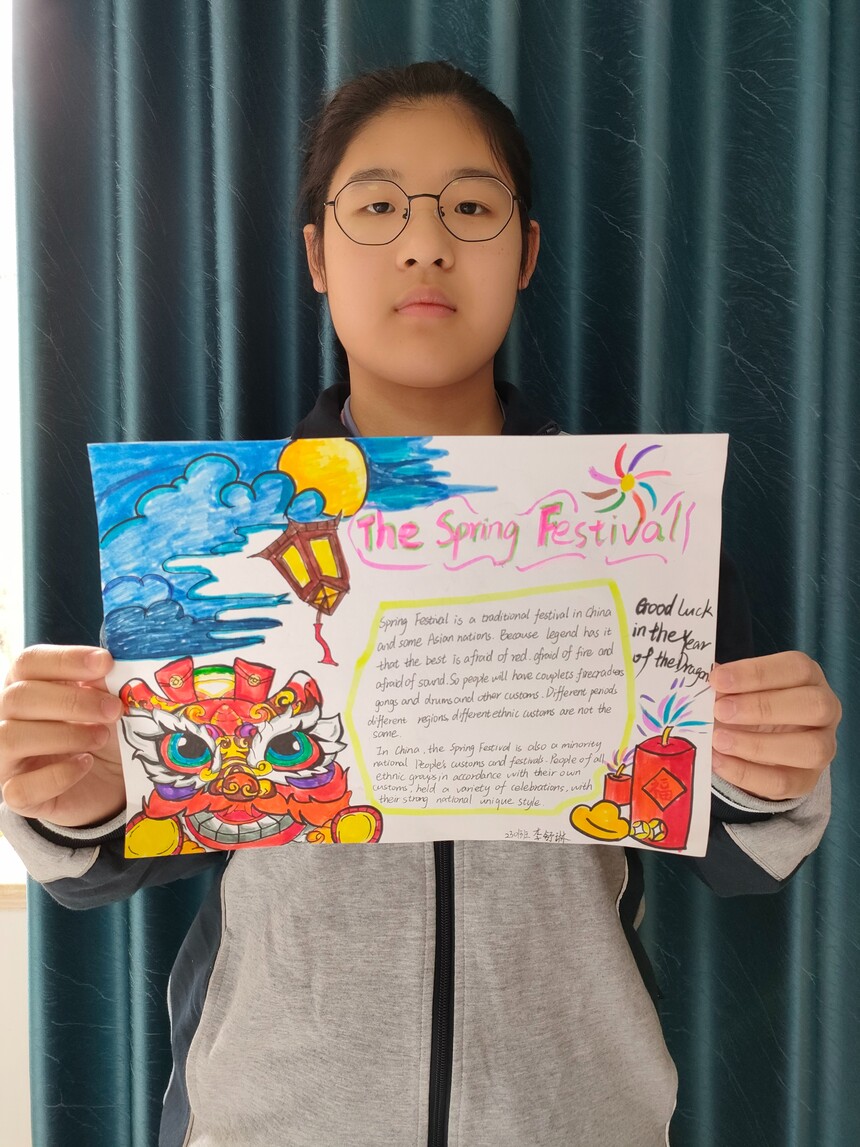 The Spring Festival
Spring Festival is a traditional festival in China
and some Asian nations. Because legend has it
that the best is afraid of red. afraid of fire and
afraid of sound. So people will have couplets firecrackers
gongs and drums and other customs. Different periods
different regions, different ethnic customs are not the
same.
In China, the Spring Festival is also a minority
national People's customs and festivals. People of all
ethnic groups in accordance with their own
customs, held a variety of celebrations, with
their strong national unique style.
Good Luck
in the Year
of the Dragon!
福
李舒琳